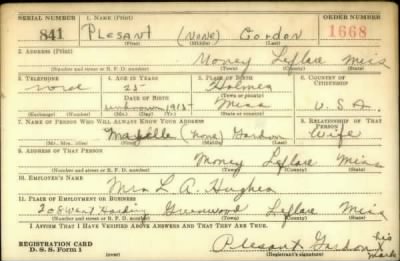 SERIAL NUMBER 1. NAME (Print) ORDER NUMBER
841 Plesant (none) Gordon 1668
(First) (Middle) (Last)
2. ADDRESS (Print)
Money Leflore Miss
(Number and street or R. F. D. number) (Town) (County) (State)
3. TELEPHONE 4. AGE IN YEARS 5. PLACE OF BIRTH 6. COUNTRY OF CITIZENSHIP
none 25 Holmes
(Town or county)
DATE OF BIRTH
unknown 1915 Miss U.S.A.
(Exchange) (Number) (Mo.) (Day) (Yr.) (State or country)
7. NAME OF PERSON WHO WILL ALWAYS KNOW YOUR ADDRESS 8. RELATIONSHIP OF THAT PERSON
Maybelle (none) Gordon Wife
(Mr., Mrs., Miss) (First) (Middle) (Last)
9. ADDRESS OF THAT PERSON
Money Leflore Miss
(Number and street or R. F. D. number) (Town) (County) (State)
10. EMPLOYER'S NAME
Mrs L. A. Hughes
11. PLACE OF EMPLOYMENT OR BUSINESS
208 West Harding Greenwood Leflore Miss
(Number and street or R. F. D. number) (Town) (County) (State)
I AFFIRM THAT I HAVE VERIFIED ABOVE ANSWERS AND THAT THEY ARE TRUE.
REGISTRATION CARD Plesant Gordon his mark
D. S. S. Form 1 (over) (Registrant's signature)